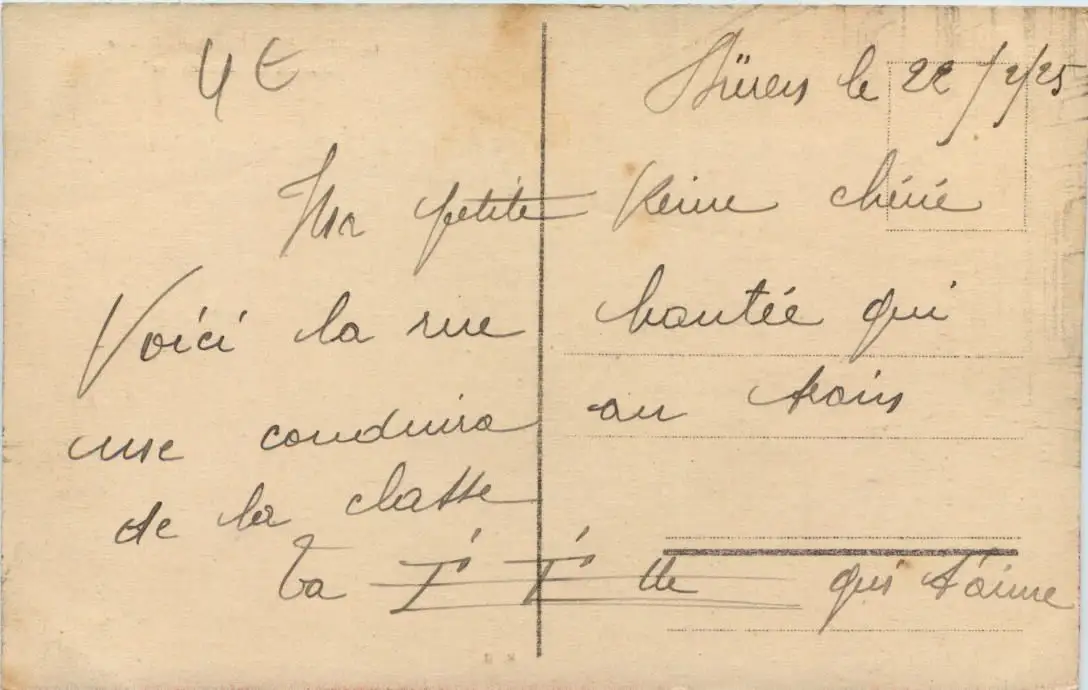 4 €
Düren le 22/2/25
Ma petite Reine chérie
Voici la rue hantée qui
me conduira au train
de la classe
Ta I I tte qui t'aime